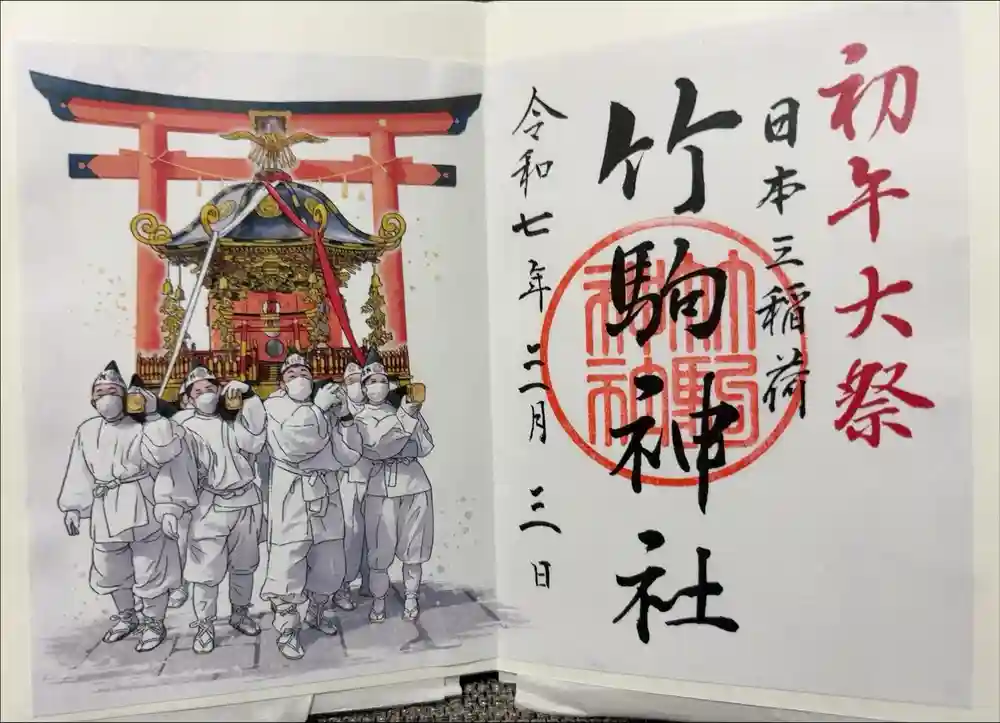 初午大祭
日本三稲荷
竹駒神社
令和七年三月三日
竹駒
神社